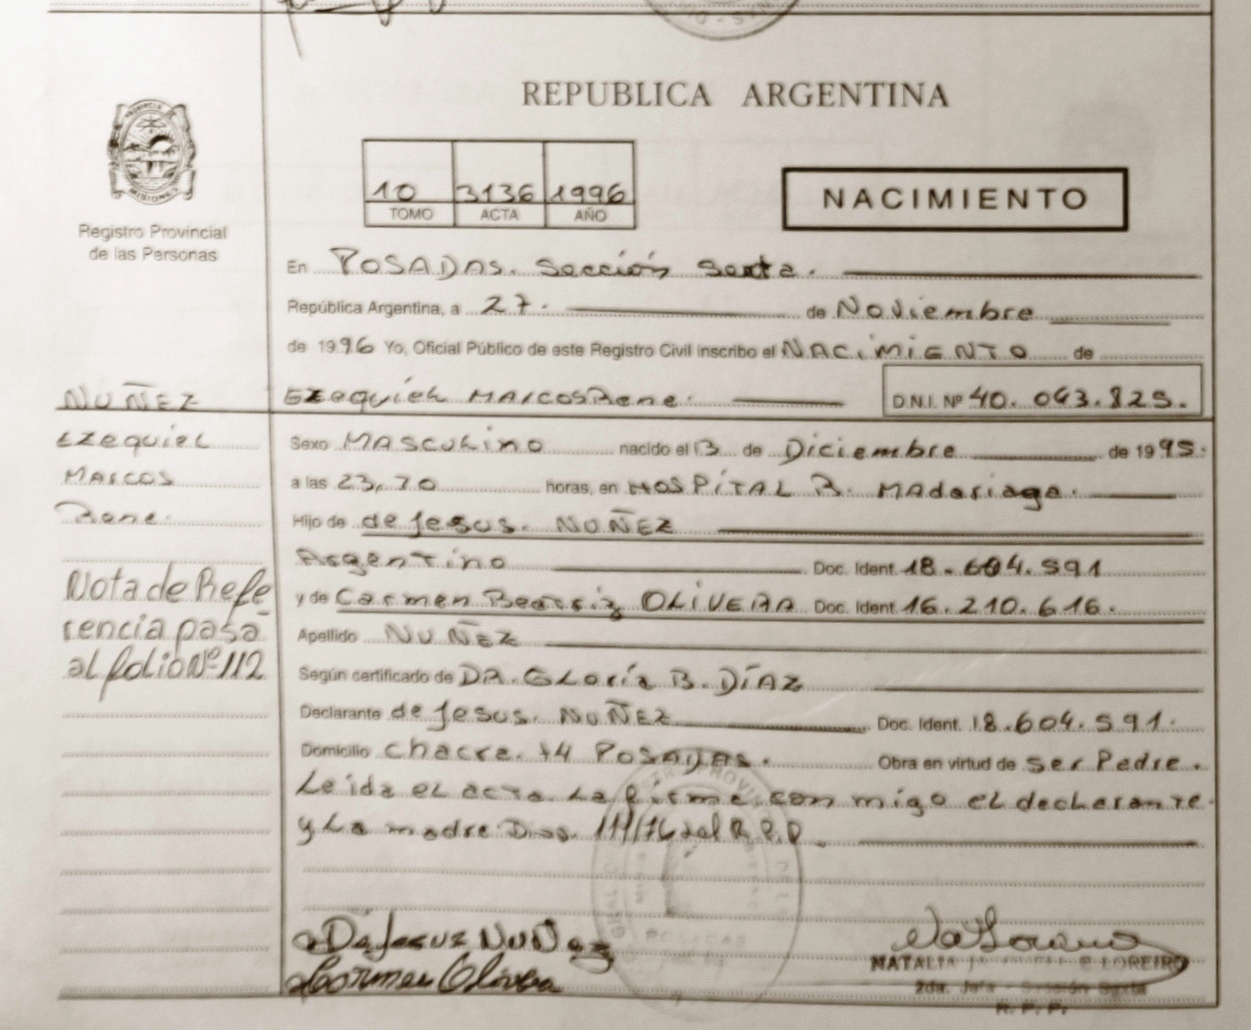 REPUBLICA ARGENTINA
PROVINCIA DE
MISIONES
Registro Provincial
de las Personas
10 3136 1996
TOMO ACTA AÑO
NACIMIENTO
En POSADAS. Sección Sexta.
República Argentina, a 27. de Noviembre
de 1996 Yo, Oficial Público de este Registro Civil inscribo el NACIMIENTO de
Ezequiel MARCOS Rene. D.N.I. Nº 40.043.825.
NUÑEZ
Ezequiel
MARCOS
Rene.
Nota de Refe
rencia pasa
al folio Nº 112
Sexo MASCULINO nacido el 13 de Diciembre de 1995.
a las 23,70 horas, en HOSPITAL R. Madariaga.
Hijo de de Jesus. NUÑEZ
Argentino Doc. Ident. 18.604.591
y de Carmen Beatriz OLIVERA Doc. Ident. 16.210.616.
Apellido NUÑEZ
Según certificado de DR. Gloria B. DÍAZ
Declarante de Jesus. NUÑEZ Doc. Ident. 18.604.591.
Domicilio chacra. 74 POSADAS. Obra en virtud de ser Padre.
Leida el acta La firma con migo el declarante
y La madre Dios. 111/76 del R.P.P.
De Jesus Nuñez
Carmen Olivera
NATALIA LOREIRO
2da. Jefa - Sección Sexta
R. P. P.